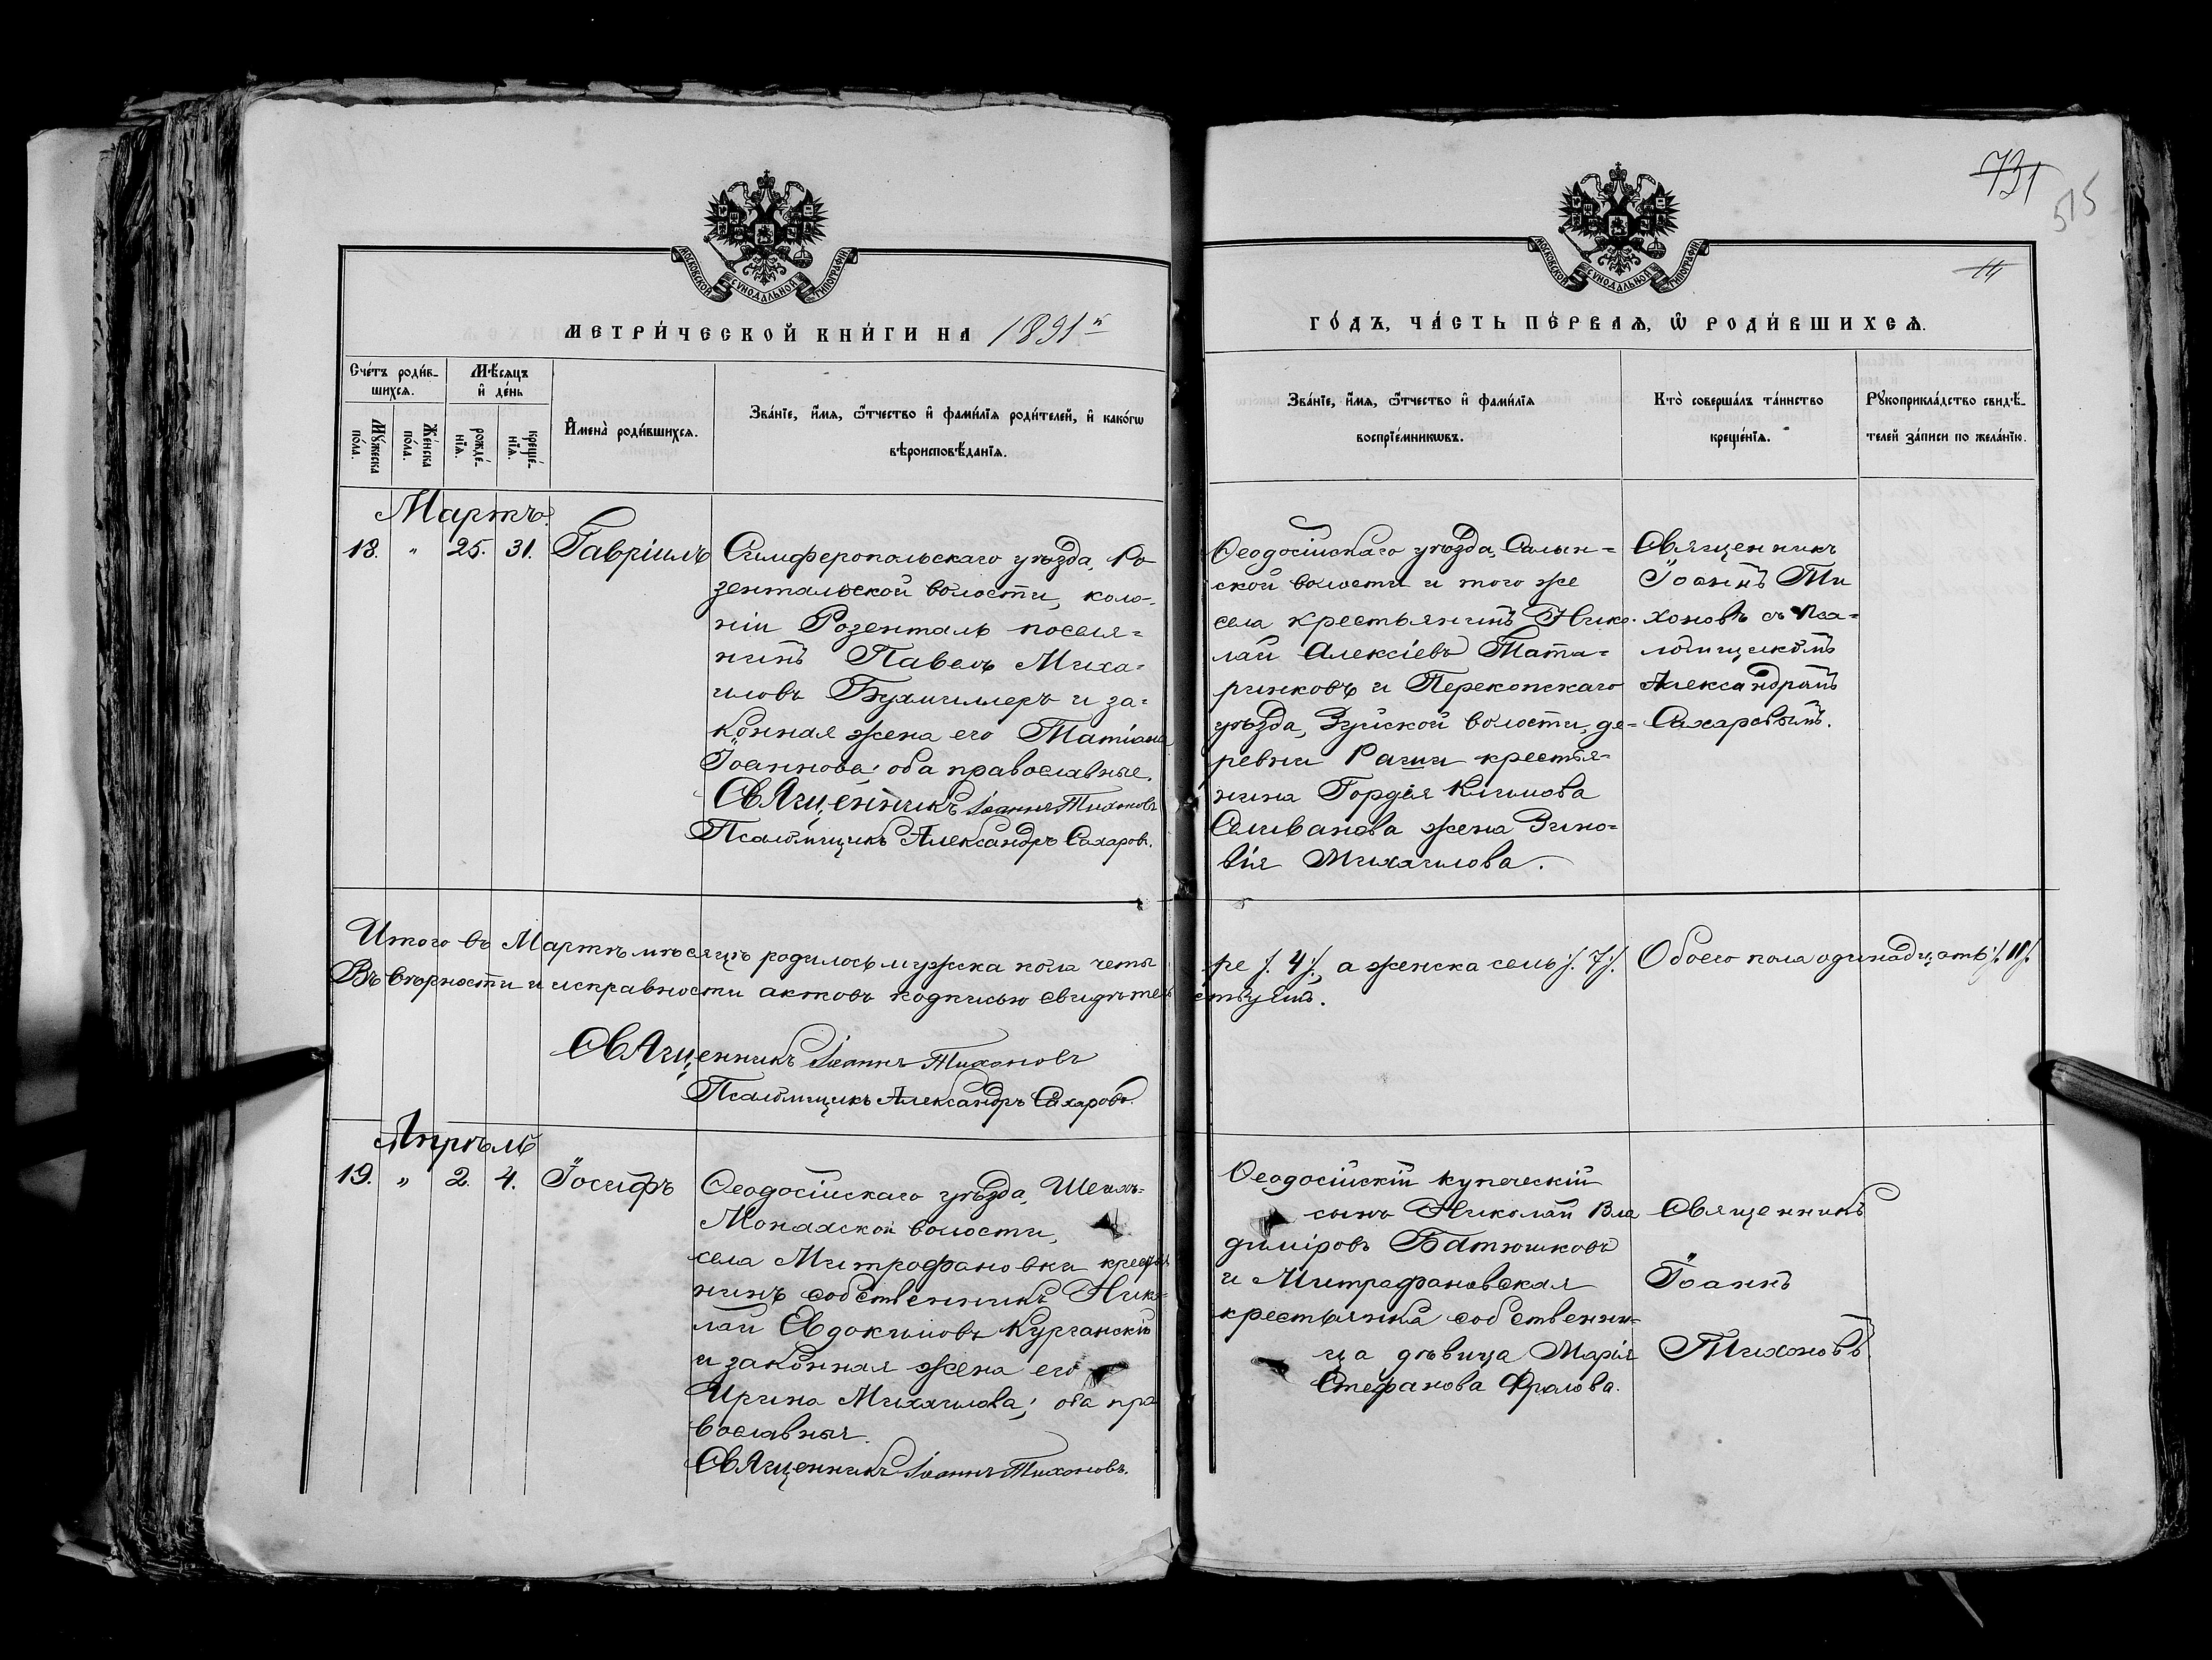 731
515
14
МОСКОВСКОЙ СѴНОДАЛЬНОЙ ТИПОГРАФІИ
МОСКОВСКОЙ СѴНОДАЛЬНОЙ ТИПОГРАФІИ
МЕТРИ́ЧЕСКОЙ КНИ́ГИ НА 1891й
ГО́ДЪ, ЧА́СТЬ ПЕ́РВАѦ, Ѡ҆ РОДИ́ВШИХСѦ.
Сче́тъ роди́в-
шихсѧ.
Мѣ́сѧцъ
и҆ де́нь
Мꙋ́жеска
по́ла.
Же́нска
по́ла.
рожде́-
нїѧ.
креще́-
нїѧ.
И҆мена̀ роди́вшихсѧ.
Зва́нїе, и҆́мѧ, ѻ҆́тчество и҆ фами́лїѧ роди́телей, и҆ како́гѡ
вѣроисповѣ́данїѧ.
Зва́нїе, и҆́мѧ, ѻ҆́тчество и҆ фами́лїѧ
воспрїе́мникѡвъ.
Кто̀ соверша́лъ та́инство
креще́нїѧ.
Рꙋкоприкла́дство свидѣ́-
телей за́писи по жела́нїю.
Мартъ.
18. " 25. 31. Гавріилъ
Симферопольскаго уѣзда, Ро
зентальской волости, коло-
ніи Розенталь поселя=
нинъ Павелъ Миха=
иловъ Бухмиллеръ и за-
конная жена его Татіана
Іоаннова; оба православные.
Священникъ Іоаннъ Тихоновъ
Псаломщикъ Александръ Сахаровъ.
Ѳеодосійскаго уѣзда, Салын=
ской волости и того же
села крестьянинъ Нико-
лай Алексіевъ Тата=
ринковъ и Перекопскаго
уѣзда, Зуйской волости, де=
ревни Раши крестья=
нина Гордія Климова
Селиванова жена Зино=
вія Михаилова.
Священникъ
Іоаннъ Ти
хоновъ съ Пса=
ломщикомъ
Александромъ
Сахаровымъ.
Итого въ Мартѣ мѣсяцѣ родилось мужска пола четы
ре /. 4 /., а женска семь /. 7 /. Обоего пола одинадцать /. 11 /.
Въ вѣрности и исправности актовъ подписью свидѣтель
ствуемъ.
Священникъ Іоаннъ Тихоновъ
Псаломщикъ Александръ Сахаровъ.
Апрѣль
19. " 2. 4. Іосифъ
Ѳеодосійскаго уѣзда, Шейхъ-
Монахской волости,
села Митрофановки крестья
нинъ собственникъ Нико-
лай Евдокимовъ Курганскій
и законная жена его
Ирина Михаилова; оба пра
вославныя.
Священникъ Іоаннъ Тихоновъ.
Ѳеодосійскій купеческій
сынъ Николай Вла
диміровъ Батюшковъ
и Митрафановская
крестьянка собственни-
ца дѣвица Марія
Стефанова Фролова.
Священникъ
Іоаннъ
Тихоновъ.